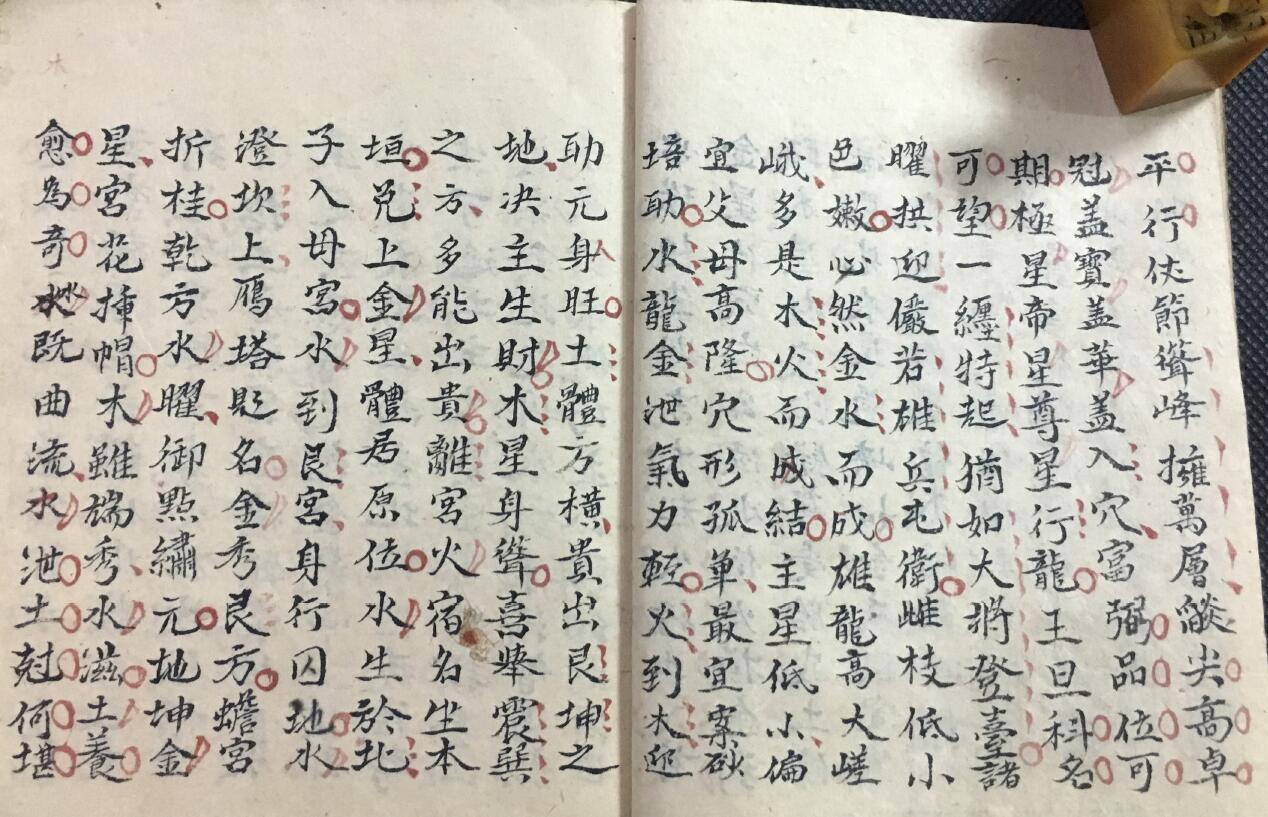 平行仗節聳峰擁萬層燄尖高卓
冠蓋寶蓋華蓋入穴富弼品位可
期極星帝星尊星行龍王旦科名
可望一纏特起猶如大將登臺諸
曜拱迎儼若雄兵屯衛雌枝低小
色嫩必然金水而成雄龍高大嵯
峨多是木火而成結主星低小偏
宜父母高隆穴形孤单最宜案砂
培助水龍金泄氣力輕火到木迎
助元身旺土體方橫貴出艮坤之
地决主生財木星身聳喜舉震巽
之方多能出貴離宮火宿名坐本
垣兌上金星體居原位水生於北
子入母宮水到艮宮身行囚地水
澄坎上雁塔題名金秀艮方蟾宮
折桂乾方水曜御點繡元地坤金
星宮花揷帽木雖端秀水滋土養
愈為奇妙水既曲流水泄土尅何堪